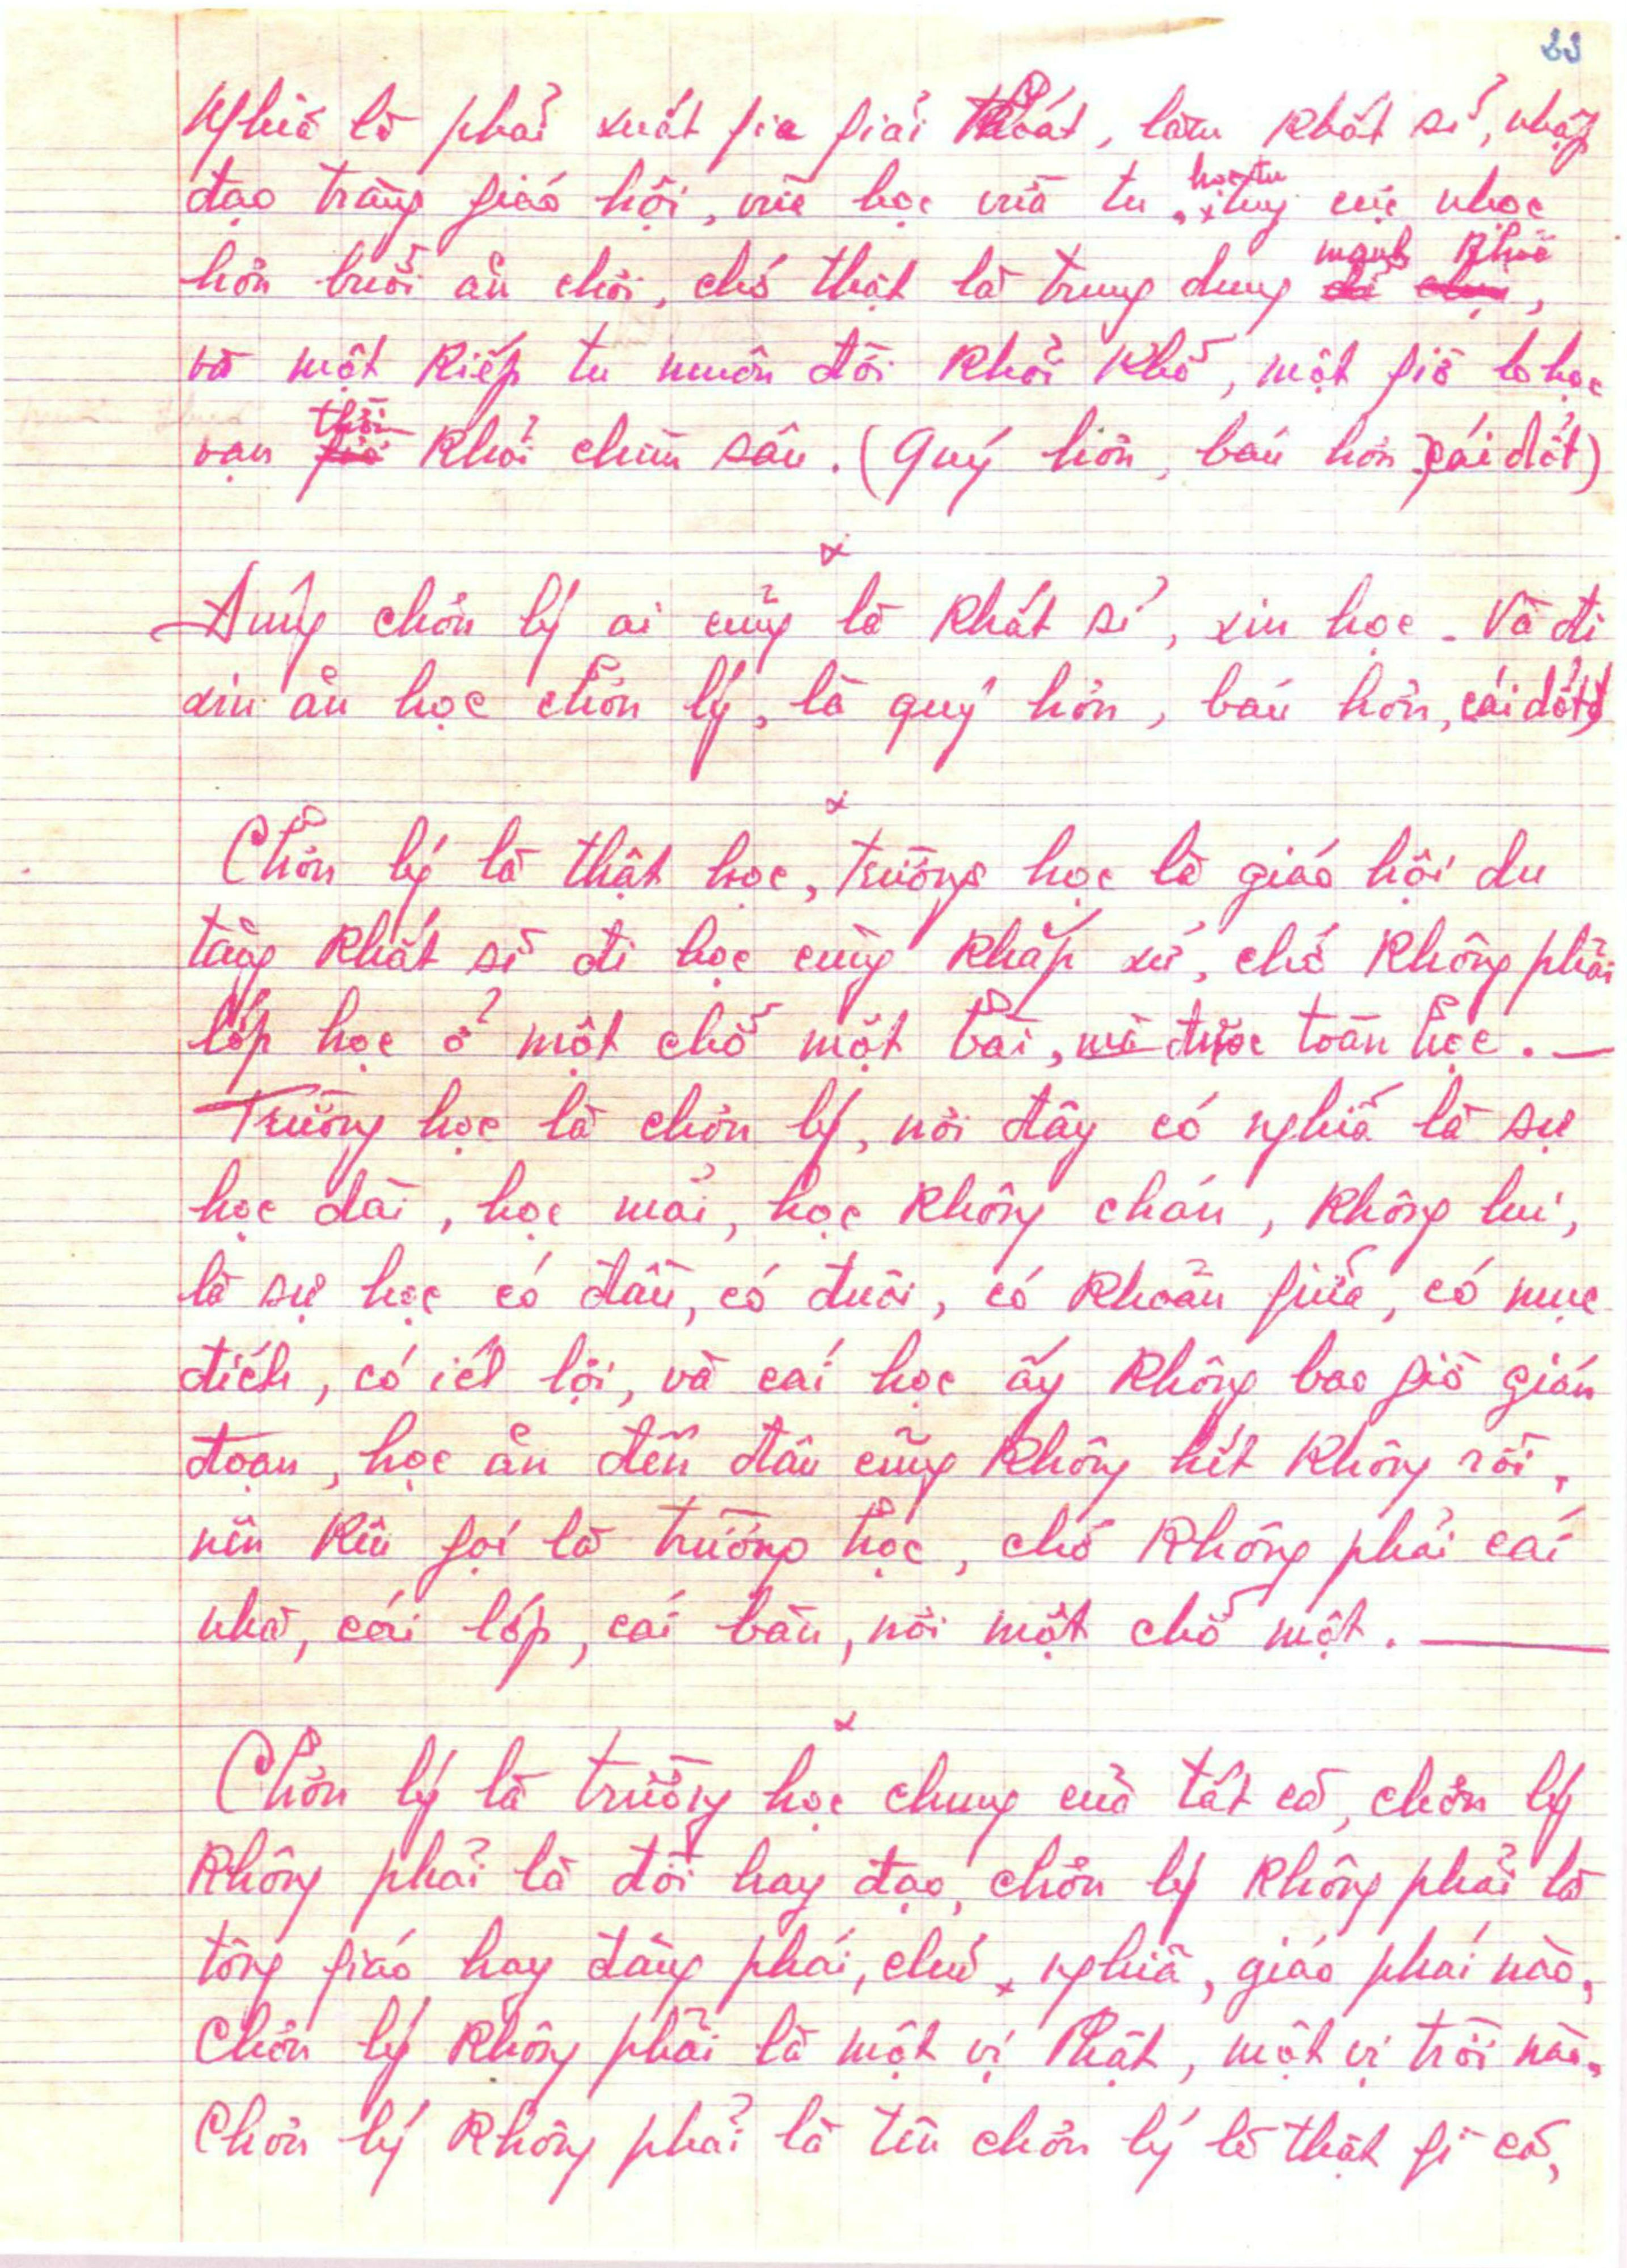 23
Nghiã là phải xuất gia giải thoát, làm khất sĩ, nhập
đạo tràng giáo hội, vừa học vừa tu, học tu tuy cực nhọc
hơn buổi ăn chơi, chớ thật là trung dung mạnh khoẻ,
và một kiếp tu muôn đời khỏi khổ, một giờ lo học
vạn thời khỏi chìm sâu. (Quý hơn, báu hơn cái dốt)
x
Đúng chơn lý ai cũng là khất sĩ, xin học. Và đi
xin ăn học chơn lý, là quý hơn, báu hơn, cái dốt
x
Chơn lý là thật học, trường học là giáo hội du
tăng khất sĩ đi học cùng khắp xứ, chớ không phải
lớp học ở một chỗ một bài, mà được toàn học. —
Trường học là chơn lý, nơi đây có nghiã là sự
học dài, học mãi, học không chán, không lui,
là sự học có đầu, có đuôi, có khoản giữa, có mục
đích, có ích lợi, và cái học ấy không bao giờ gián
đoạn, học ăn đến đâu cũng không hết không rồi,
nên kêu gọi là trường học, chớ không phải cái
nhà, cái lớp, cái bàn, nơi một chỗ một. —
x
Chơn lý là trường học chung của tất cả, chơn lý
không phải là đời hay đạo, chơn lý không phải là
tông giáo hay đảng phái, chủ nghiã, giáo phái nào,
Chơn lý không phải là một vị Phật, một vị trời nào,
Chơn lý không phải là tên chơn lý lẽ thật gì cả,